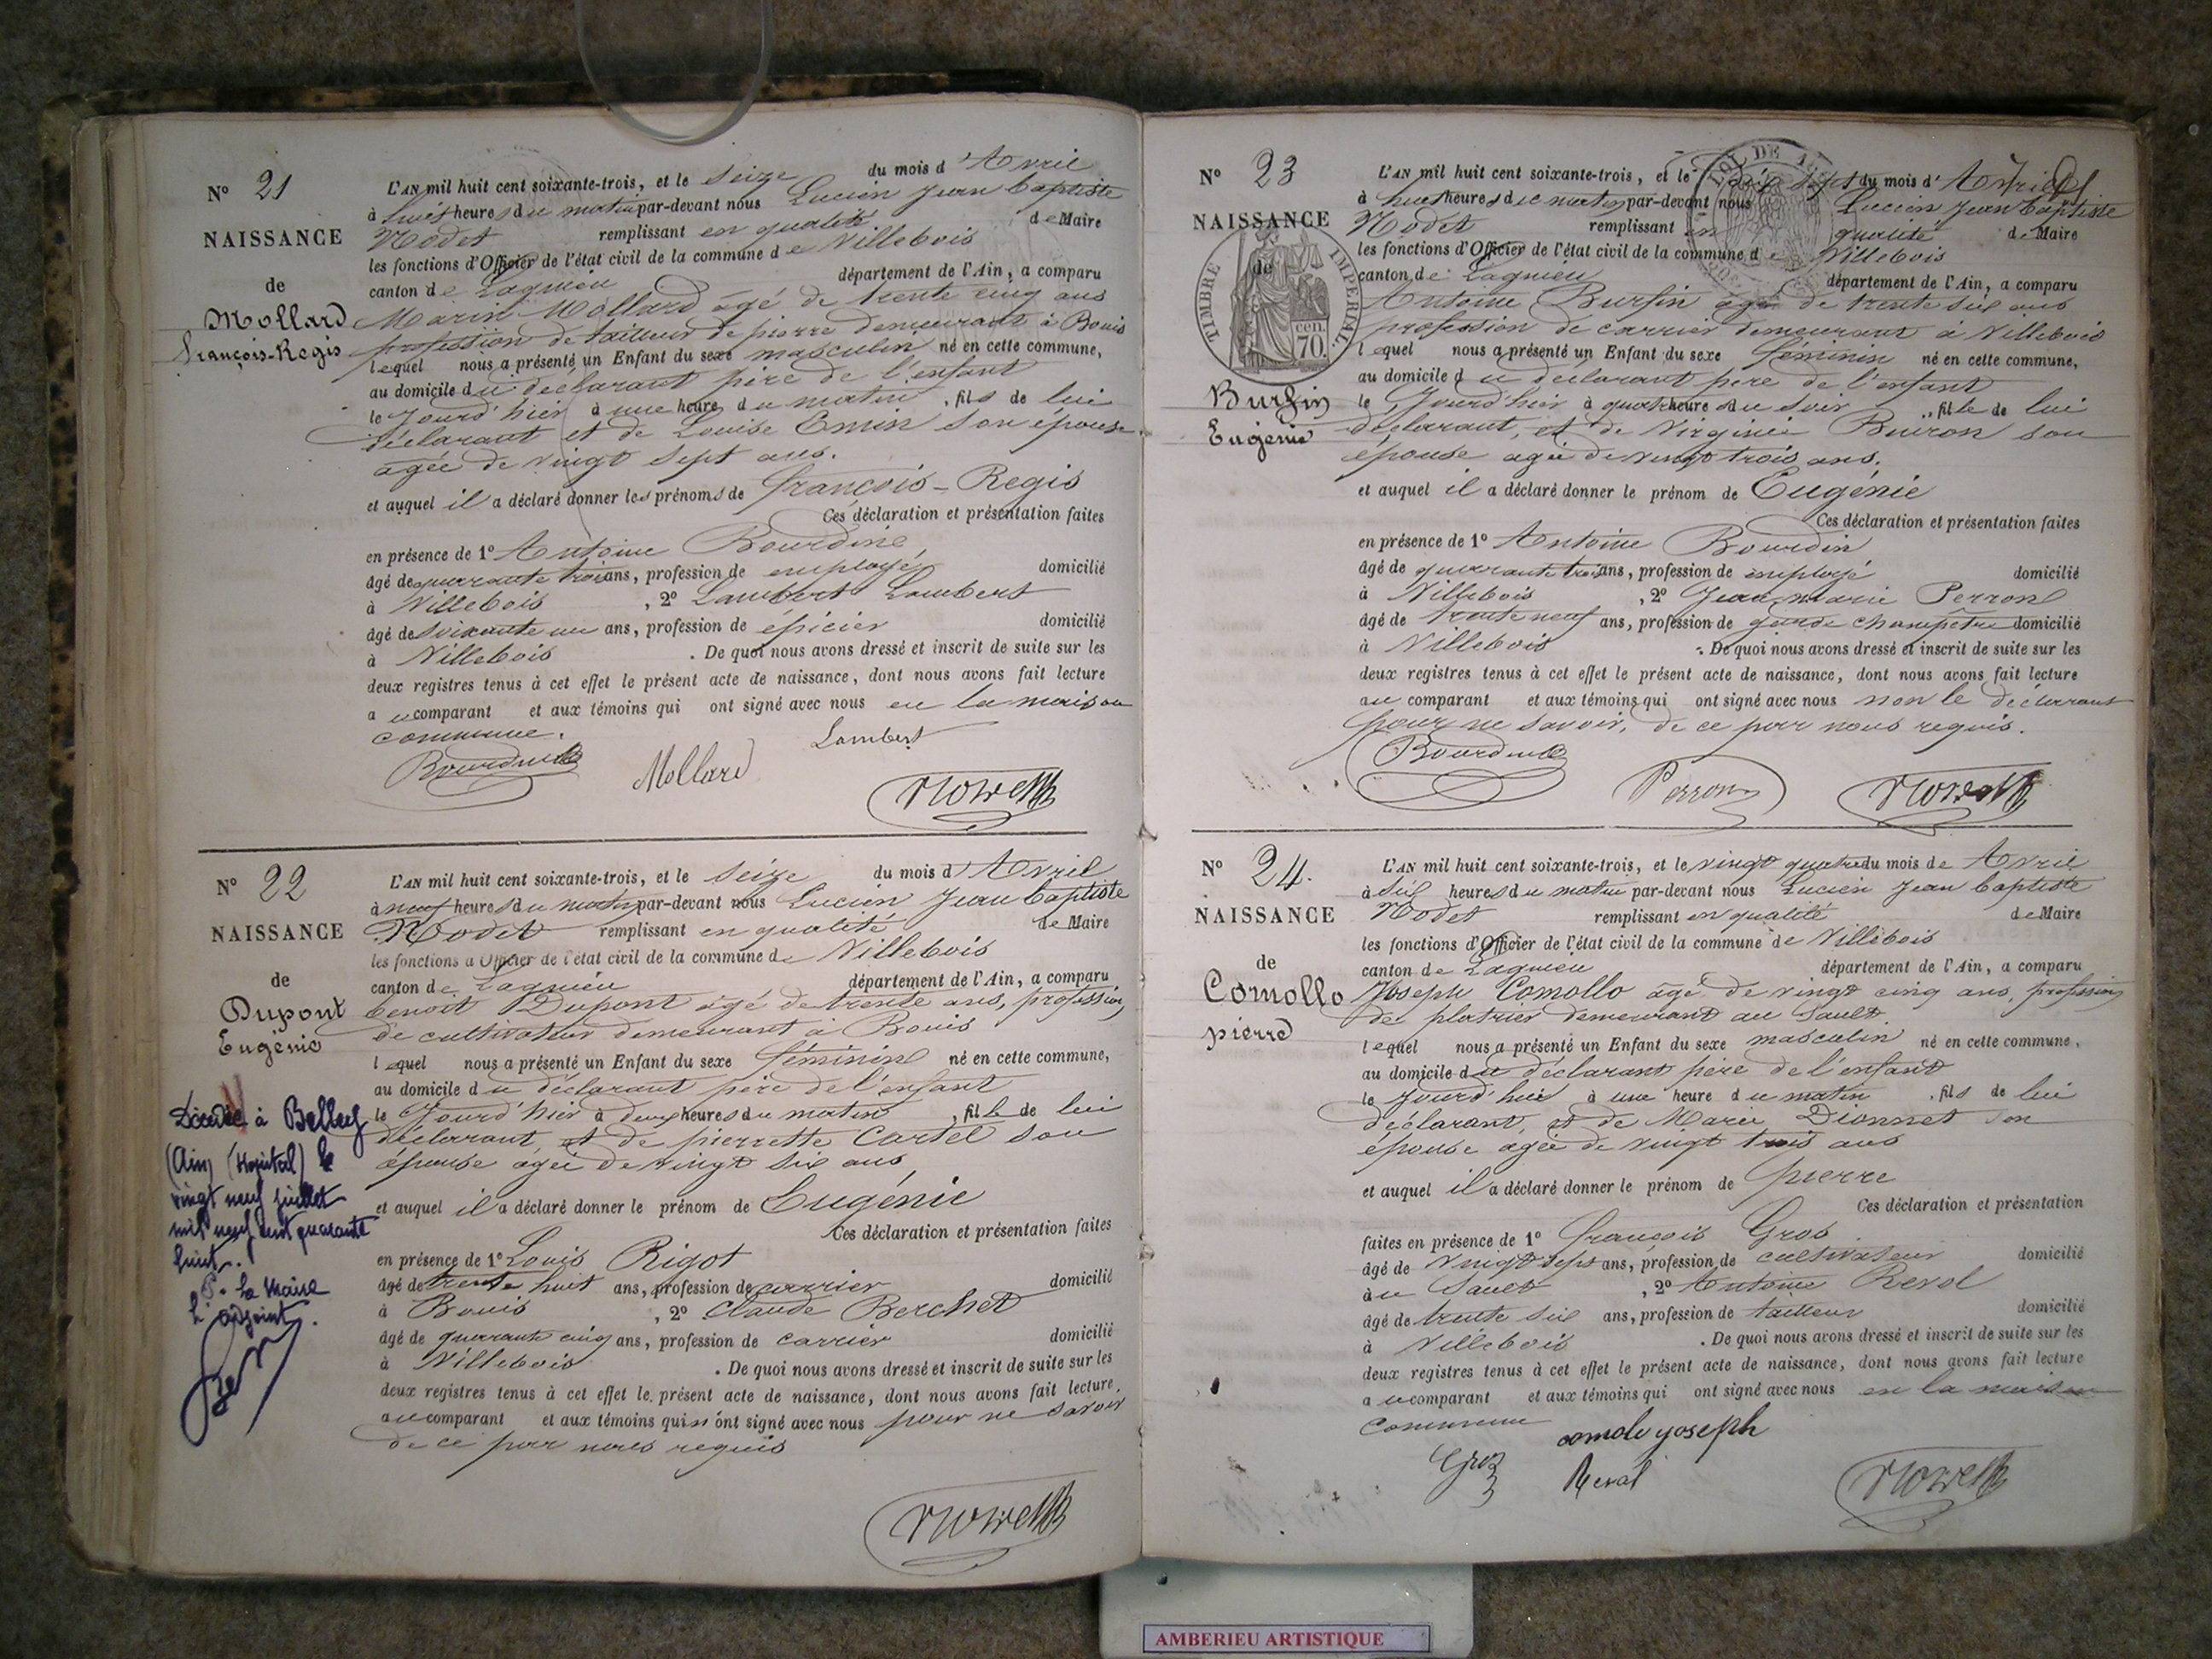 N° 21
NAISSANCE
de
Mollard
François-Regis
L'AN mil huit cent soixante-trois, et le seize du mois d'Avril
à huit heures du matin par-devant nous Lucien Jean Baptiste
Nodet remplissant en qualité de Maire
les fonctions d'Officier de l'état civil de la commune de Villebois
canton de Lagnieu département de l'Ain, a comparu
Marin Mollard âgé de trente cinq ans
profession de tailleur de pierre demeurant à Bouis
lequel nous a présenté un Enfant du sexe masculin né en cette commune,
au domicile du déclarant père de l'enfant
le Jourd'hier à une heure du matin, fils de lui
déclarant et de Louise Emin son épouse
agée de vingt sept ans.
et auquel il a déclaré donner les prénoms de François-Regis
Ces déclaration et présentation faites
en présence de 1° Antoine Bourdin
âgé de quarante trois ans, profession de employé domicilié
à Villebois, 2° Lambert Lambert
âgé de soixante un ans, profession de épicier domicilié
à Villebois. De quoi nous avons dressé et inscrit de suite sur les
deux registres tenus à cet effet le présent acte de naissance, dont nous avons fait lecture
au comparant et aux témoins qui ont signé avec nous en la maison
commune.
Lambert
Mollard
N° 22
NAISSANCE
de
Dupont
Eugénie
Décédée à Belley
(Ain) (Hopital) le
vingt neuf juillet
mil neuf cent quarante
huit.
P. le Maire
L'adjoint.
L'AN mil huit cent soixante-trois, et le seize du mois d'Avril
à neuf heures du matin par-devant nous Lucien Jean Baptiste
Nodet remplissant en qualité de Maire
les fonctions d'Officier de l'état civil de la commune de Villebois
canton de Lagnieu département de l'Ain, a comparu
benoit Dupont âgé de trente ans, profession
de cultivateur demeurant à Bouis
lequel nous a présenté un Enfant du sexe féminin né en cette commune,
au domicile du déclarant père de l'enfant
le Jourd'hier à deux heures du matin, fille de lui
déclarant et de pierrette Cartel son
épouse âgée de vingt six ans
et auquel il a déclaré donner le prénom de Eugénie
Ces déclaration et présentation faites
en présence de 1° Louis Rigot
âgé de trente huit ans, profession de carrier domicilié
à Bouis, 2° Claude Berchet
âgé de quarante cinq ans, profession de carrier domicilié
à Villebois. De quoi nous avons dressé et inscrit de suite sur les
deux registres tenus à cet effet le présent acte de naissance, dont nous avons fait lecture
au comparant et aux témoins qui n'ont signé avec nous pour ne savoir
de ce par nous requis
N° 23
NAISSANCE
de
TIMBRE IMPERIAL
cen.
70.
Bursin
Eugénie
L'AN mil huit cent soixante-trois, et le dix sept du mois d'Avril
à huit heures du matin par-devant nous Lucien Jean Baptiste
Nodet remplissant en qualité de Maire
les fonctions d'Officier de l'état civil de la commune de Villebois
canton de Lagnieu département de l'Ain, a comparu
Antoine Bursin âgé de trente six ans
profession de carrier demeurant à Villebois
lequel nous a présenté un Enfant du sexe féminin né en cette commune,
au domicile du déclarant père de l'enfant
le Jourd'hier à quatre heure du soir, fille de lui
déclarant, et de Virginie Buiron son
épouse agée de vingt trois ans.
et auquel il a déclaré donner le prénom de Eugénie
Ces déclaration et présentation faites
en présence de 1° Antoine Bourdin
âgé de quarante trois ans, profession de employé domicilié
à Villebois, 2° Jean marie Perron
âgé de trente neuf ans, profession de garde champêtre domicilié
à Villebois. De quoi nous avons dressé et inscrit de suite sur les
deux registres tenus à cet effet le présent acte de naissance, dont nous avons fait lecture
au comparant et aux témoins qui ont signé avec nous non le déclarant
pour ne savoir, de ce par nous requis.
Perron
N° 24.
NAISSANCE
de
Comollo
pierre
L'AN mil huit cent soixante-trois, et le vingt quatre du mois de Avril
à six heures du matin par-devant nous Lucien Jean Baptiste
Nodet remplissant en qualité de Maire
les fonctions d'Officier de l'état civil de la commune de Villebois
canton de Lagnieu département de l'Ain, a comparu
Joseph Comollo âgé de vingt cinq ans, profession
de platrier demeurant au Sault
lequel nous a présenté un Enfant du sexe masculin né en cette commune,
au domicile du déclarant père de l'enfant
le Jourd'hui à une heure du matin, fils de lui
déclarant, et de Marie Dionnet son
épouse agée de vingt trois ans
et auquel il a déclaré donner le prénom de pierre
Ces déclaration et présentation
faites en présence de 1° François Gros
âgé de vingt sept ans, profession de cultivateur domicilié
au Sault, 2° Antoine Revol
âgé de trente six ans, profession de tailleur domicilié
à Villebois. De quoi nous avons dressé et inscrit de suite sur les
deux registres tenus à cet effet le présent acte de naissance, dont nous avons fait lecture
au comparant et aux témoins qui ont signé avec nous en la maison
Commune
comolo yoseph
Gros
Revol
AMBERIEU ARTISTIQUE